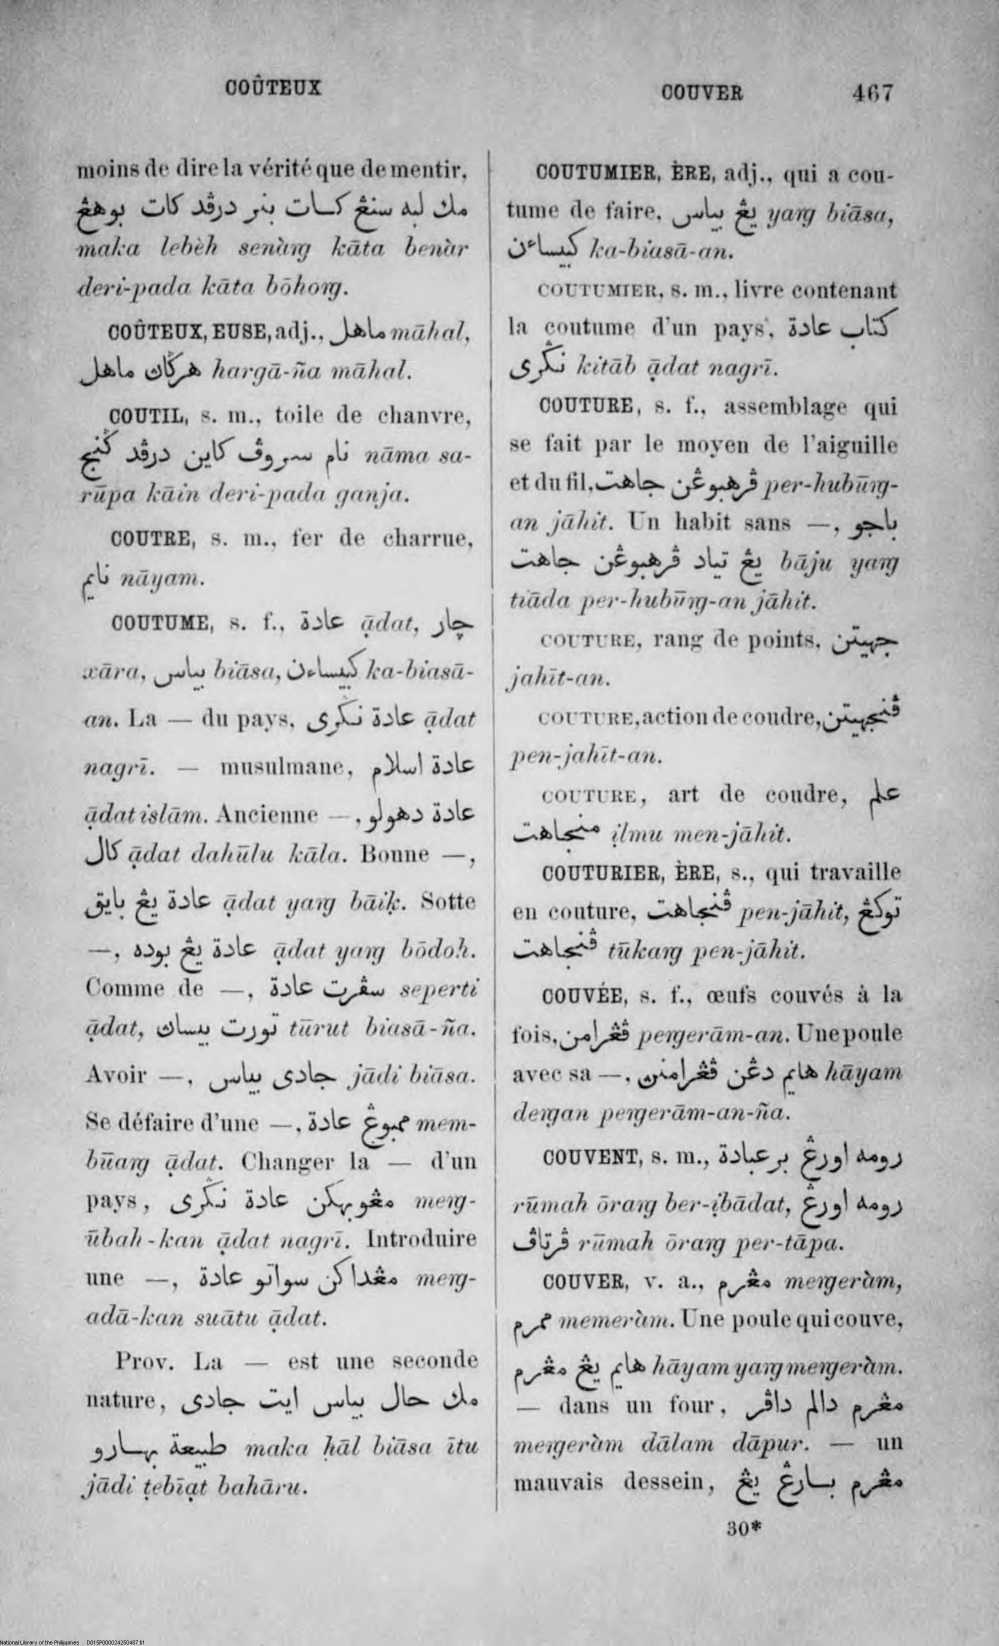 COÛTEUX
moins de dire la vérité que de mentir,
مك لبه سنڠ كات بنر درڤد كات بوهڠ
maka lebèh senàrg kāta benàr
deri-pada kāta bōhorg.
COÛTEUX, EUSE, adj., ماهل māhal,
هرݢاڽ ماهل hargā-ña māhal.
COUTIL, s. m., toile de chanvre,
نام سروڤ كاين درڤد ݢنج nāma sa-
rūpa kāin deri-pada ganja.
COUTRE, s. m., fer de charrue,
نايم nāyam.
COUTUME, s. f., عادة ạ̄dat, چار
xāra, بياس biāsa, كبيساءن ka-biasā-
an. La — du pays, عادة نݢرى ạ̄dat
nagrī. — musulmane, عادة اسلام
ạ̄dat islām. Ancienne —, عادة دهولو
كال ạ̄dat dahūlu kāla. Bonne —,
عادة يڠ بايق ạ̄dat yarg bāiḳ. Sotte
—, عادة يڠ بوده ạ̄dat yarg bōdoh.
Comme de —, سڤرت عادة seperti
ạ̄dat, تورت بيساڽ tūrut biasā-ña.
Avoir —, جادى بياس jādi biāsa.
Se défaire d'une —, ممبوڠ عادة mem-
būarg ạ̄dat. Changer la — d'un
pays, مڠوبهكن عادة نݢرى merg-
ūbah-kan ạ̄dat nagrī. Introduire
une —, مڠداكن سواتو عادة merg-
adā-kan suātu ạ̄dat.
Prov. La — est une seconde
nature, مك حال بياس ايت جادى
طبيعة بهارو maka ḥāl biāsa ītu
jādi ṭebīạt bahāru.
COUVER 467
COUTUMIER, ÈRE, adj., qui a cou-
tume de faire, يڠ بياس yarg biāsa,
كبيساءن ka-biasā-an.
COUTUMIER, s. m., livre contenant
la coutume d'un pays, كتاب عادة
نݢرى kitāb ạ̄dat nagrī.
COUTURE, s. f., assemblage qui
se fait par le moyen de l'aiguille
et du fil, ڤرهبوڠن جاهت per-hubūrg-
an jāhit. Un habit sans —, باجو
يڠ تياد ڤرهبوڠن جاهت bāju yarg
tiāda per-hubūrg-an jāhit.
COUTURE, rang de points, جهيتن
jahīt-an.
COUTURE, action de coudre, ڤنجهيتن
pen-jahīt-an.
COUTURE, art de coudre, علم
منجاهت ịlmu men-jāhit.
COUTURIER, ÈRE, s., qui travaille
en couture, ڤنجاهت pen-jāhit, توكڠ
ڤنجاهت tūkarg pen-jāhit.
COUVÉE, s. f., œufs couvés à la
fois, ڤڠرامن pergerām-an. Une poule
avec sa —, هايم دڠن ڤڠرامنڽ hāyam
dergan pergerām-an-ña.
COUVENT, s. m., رومه اورڠ بر عبادة
rūmah ōrarg ber-ịbādat, رومه اورڠ
ڤرتاڤ rūmah ōrarg per-tāpa.
COUVER, v. a., مڠرم mergeràm,
ممرم memeràm. Une poule qui couve,
هايم يڠ مڠرم hāyam yarg mergeràm.
— dans un four, مڠرم دالم داڤر
mergeràm dālam dāpur. — un
mauvais dessein, مڠرم بسارڠ يڠ
30*
National Library of the Philippines